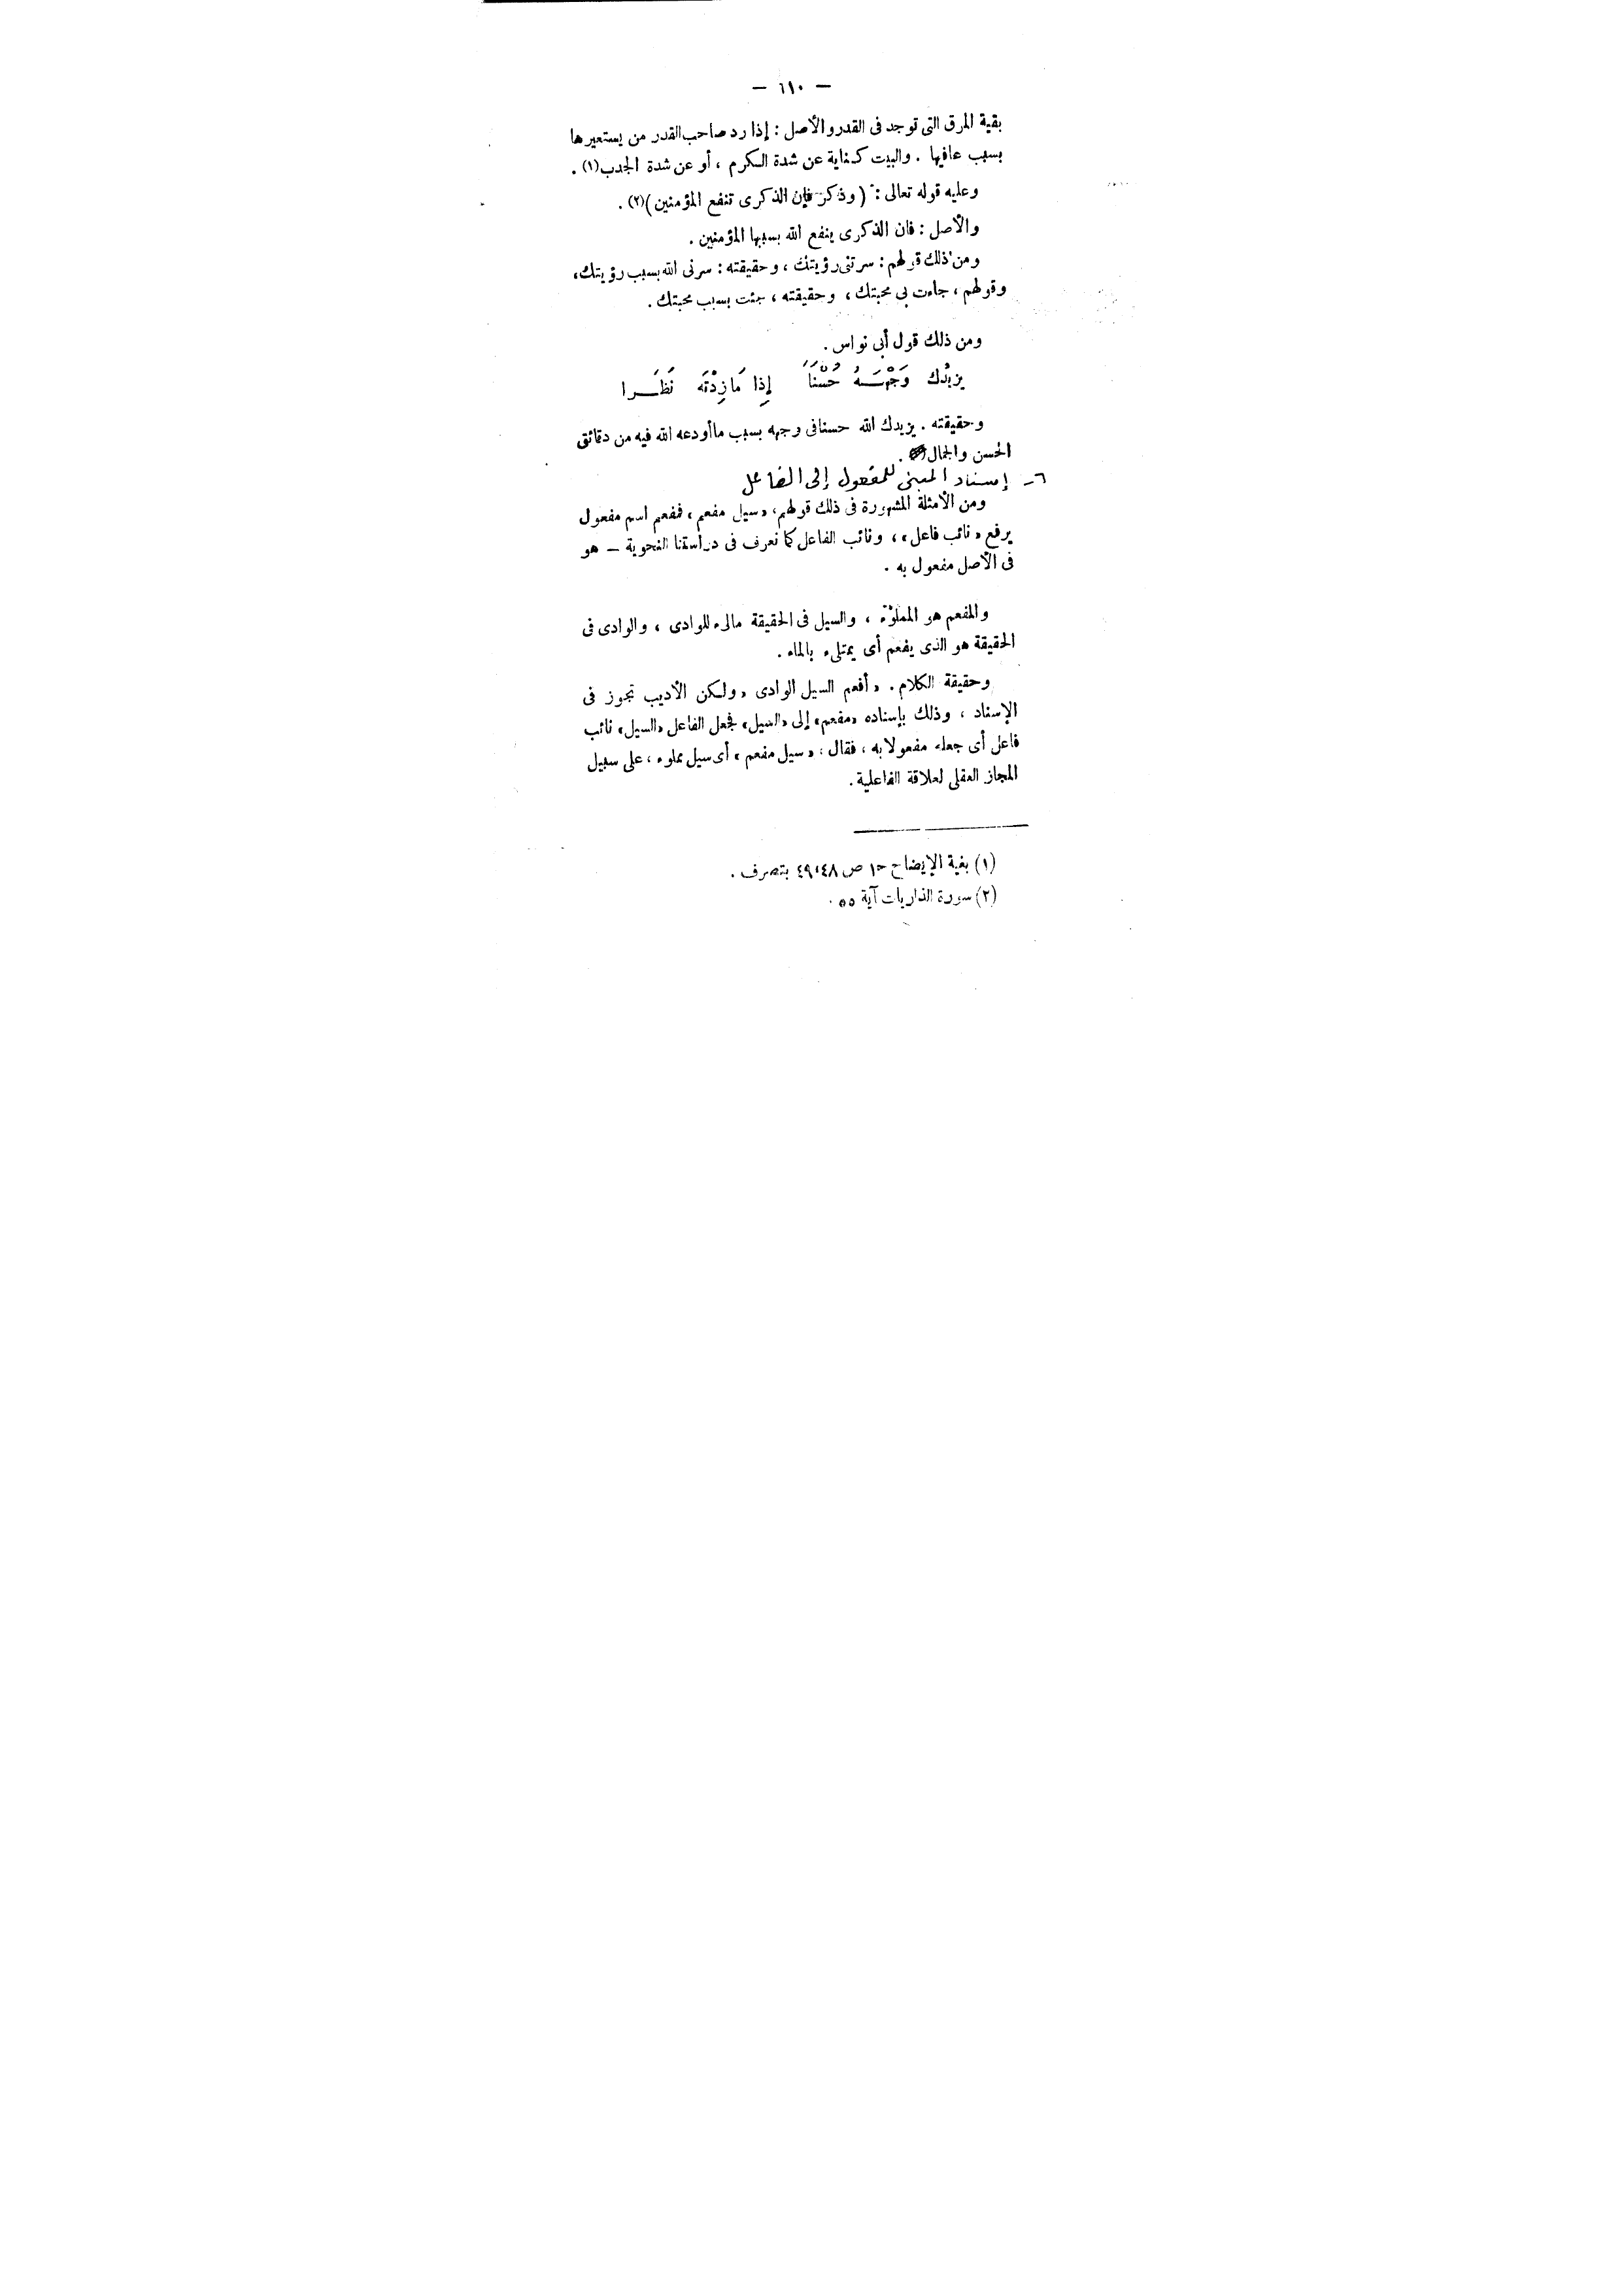 — ٦١٠ —
بقية المرق التى توجد فى القدر والأصل : إذا رد صاحب القدر من يستعيرها
بسبب عافيها . والبيت كناية عن شدة الكرم ، أو عن شدة الجدب (١) .
وعليه قوله تعالى : ( وذكر فإن الذكرى تنفع المؤمنين ) (٢) .
والأصل : فان الذكرى ينفع الله بسببها المؤمنين .
ومن ذلك قولهم : سرتنى رؤيتك ، وحقيقته : سرنى الله بسبب رؤيتك ،
وقولهم ، جاءت بى محبتك ، وحقيقته ، جئت بسبب محبتك .
ومن ذلك قول أبى نواس .
يزيدك وَجْهَـــهُ حُسْنَاً إِذا مَا زِدْتَه نَظَـــرا
وحقيقته . يزيدك الله حسنا فى وجهه بسبب ما أودعه الله فيه من دقائق
الحسن والجمال .
٦ - إسناد المبنى للمفعول إلى الفاعل
ومن الأمثلة المشهورة فى ذلك قولهم ، « سيل مفعم ، فمفعم اسم مفعول
يرفع « نائب فاعل » ، ونائب الفاعل كما نعرف فى دراستنا النحوية — هو
فى الأصل مفعول به .
والمفعم هو المملوء ، والسيل فى الحقيقة مالىء للوادى ، والوادى فى
الحقيقة هو الذى يفعم أى يمتلىء بالماء .
وحقيقة الكلام . « أفعم السيل الوادى » ولكن الأديب تجوز فى
الإسناد ، وذلك بإسناده «مفعم» إلى «السيل» فجعل الفاعل «السيل» نائب
فاعل أى جعله مفعولا به ، فقال : « سيل مفعم » أى سيل مملوء ، على سبيل
المجاز العقلى لعلاقة الفاعلية .
(١) بغية الإيضاح ح١ ص ٤٨ ، ٤٩ بتصرف .
(٢) سورة الذاريات آية ٥٥ .